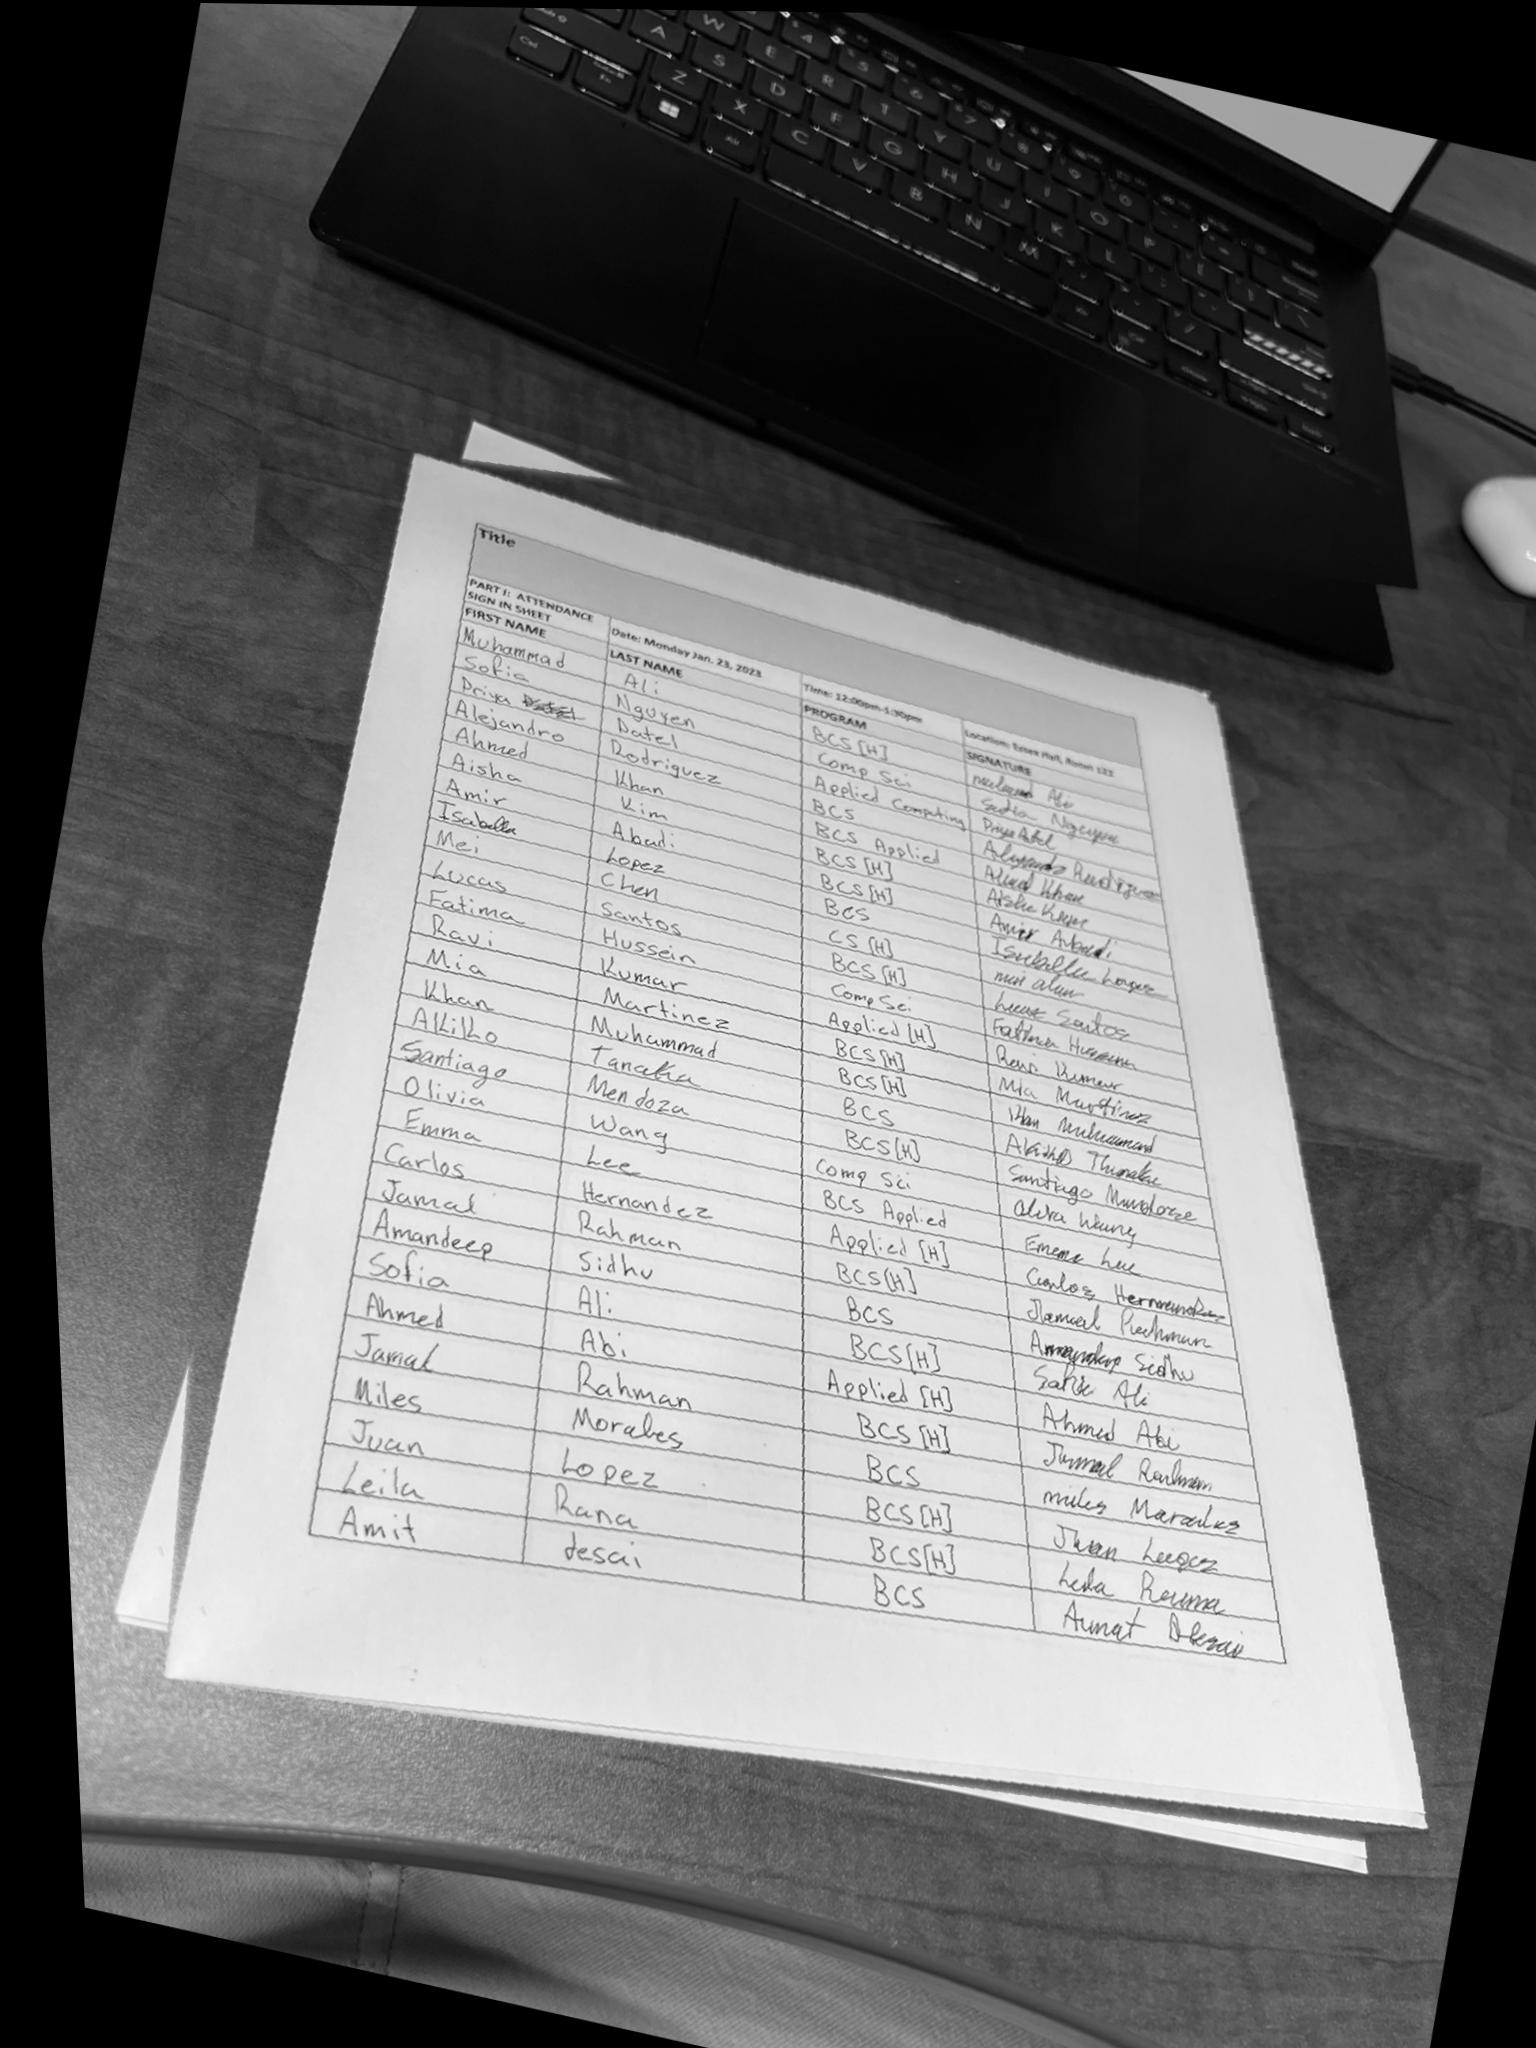 Title
PART I: ATTENDANCE SIGN IN SHEET Date: Monday Jan. 23, 2023 Time: 12:00pm-1:30pm Location: Essex Hall, Room 122
FIRST NAME LAST NAME PROGRAM SIGNATURE
Muhammad Ali BCS [H] Ali
Sofia Nguyen Comp Sci Sofia Nguyen
Priya Patel Applied Computing Priya Patel
Alejandro Rodriguez BCS Alejandro Rodriguez
Ahmed Khan BCS Applied Ahmed Khan
Aisha Kim BCS [H] Aisha Kim
Amir Abadi BCS [H] Amir Abadi
Isabella Lopez BCS Isabella Lopez
Mei Chen CS [H] mei chen
Lucas Santos BCS [H] Lucas Santos
Fatima Hussein Comp Sci Fatima Hussein
Ravi Kumar Applied [H] Ravi Kumar
Mia Martinez BCS [H] Mia Martinez
Khan Muhammad BCS [H] Khan Muhammad
Akihito Tanaka BCS Tanaka
Santiago Mendoza BCS [H] Santiago Mendoza
Olivia Wang Comp Sci Wang
Emma Lee BCS Applied Emma Lee
Carlos Hernandez Applied [H] Carlos Hernandez
Jamal Rahman BCS [H] Jamal Rahman
Amandeep Sidhu BCS Amandeep Sidhu
Sofia Ali BCS [H] Sofia Ali
Ahmed Abi Applied [H] Ahmed Abi
Jamal Rahman BCS [H] Jamal Rahman
Miles Morales BCS miles Morales
Juan Lopez BCS [H] Juan Lopez
Leila Rana BCS [H] Leila Rana
Amit desai BCS Amit Desai